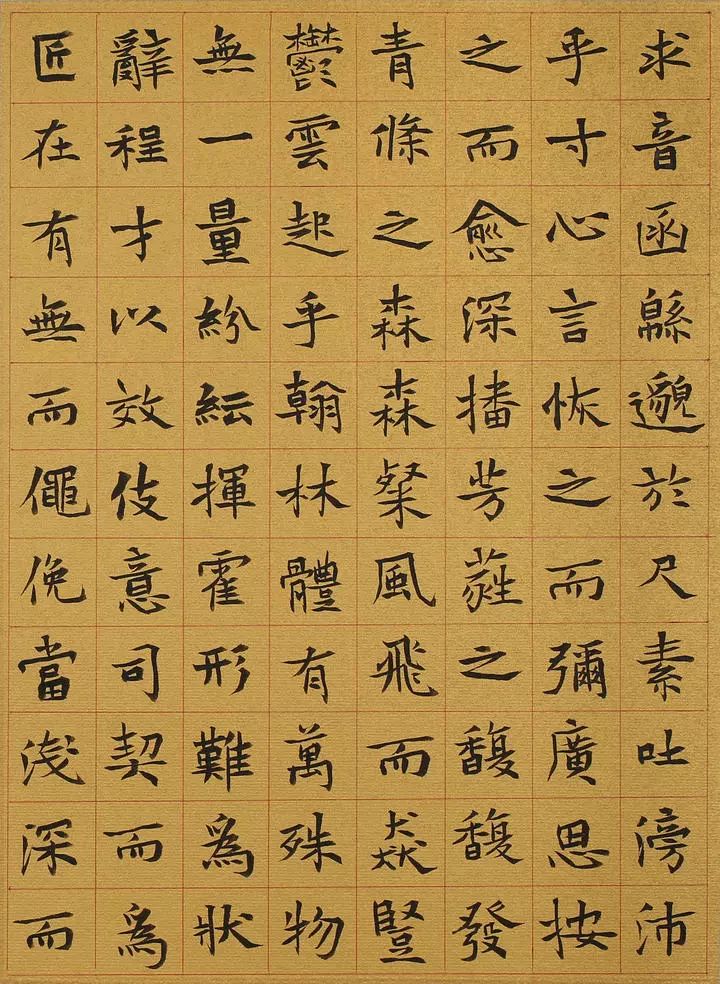 求音函緜邈於尺素吐滂沛
乎寸心言恢之而彌廣思按
之而愈深播芳蕤之馥馥發
青條之森森粲風飛而猋豎
鬱雲起乎翰林體有萬殊物
無一量紛紜揮霍形難爲狀
辭程才以效伎意司契而爲
匠在有無而僶俛當淺深而